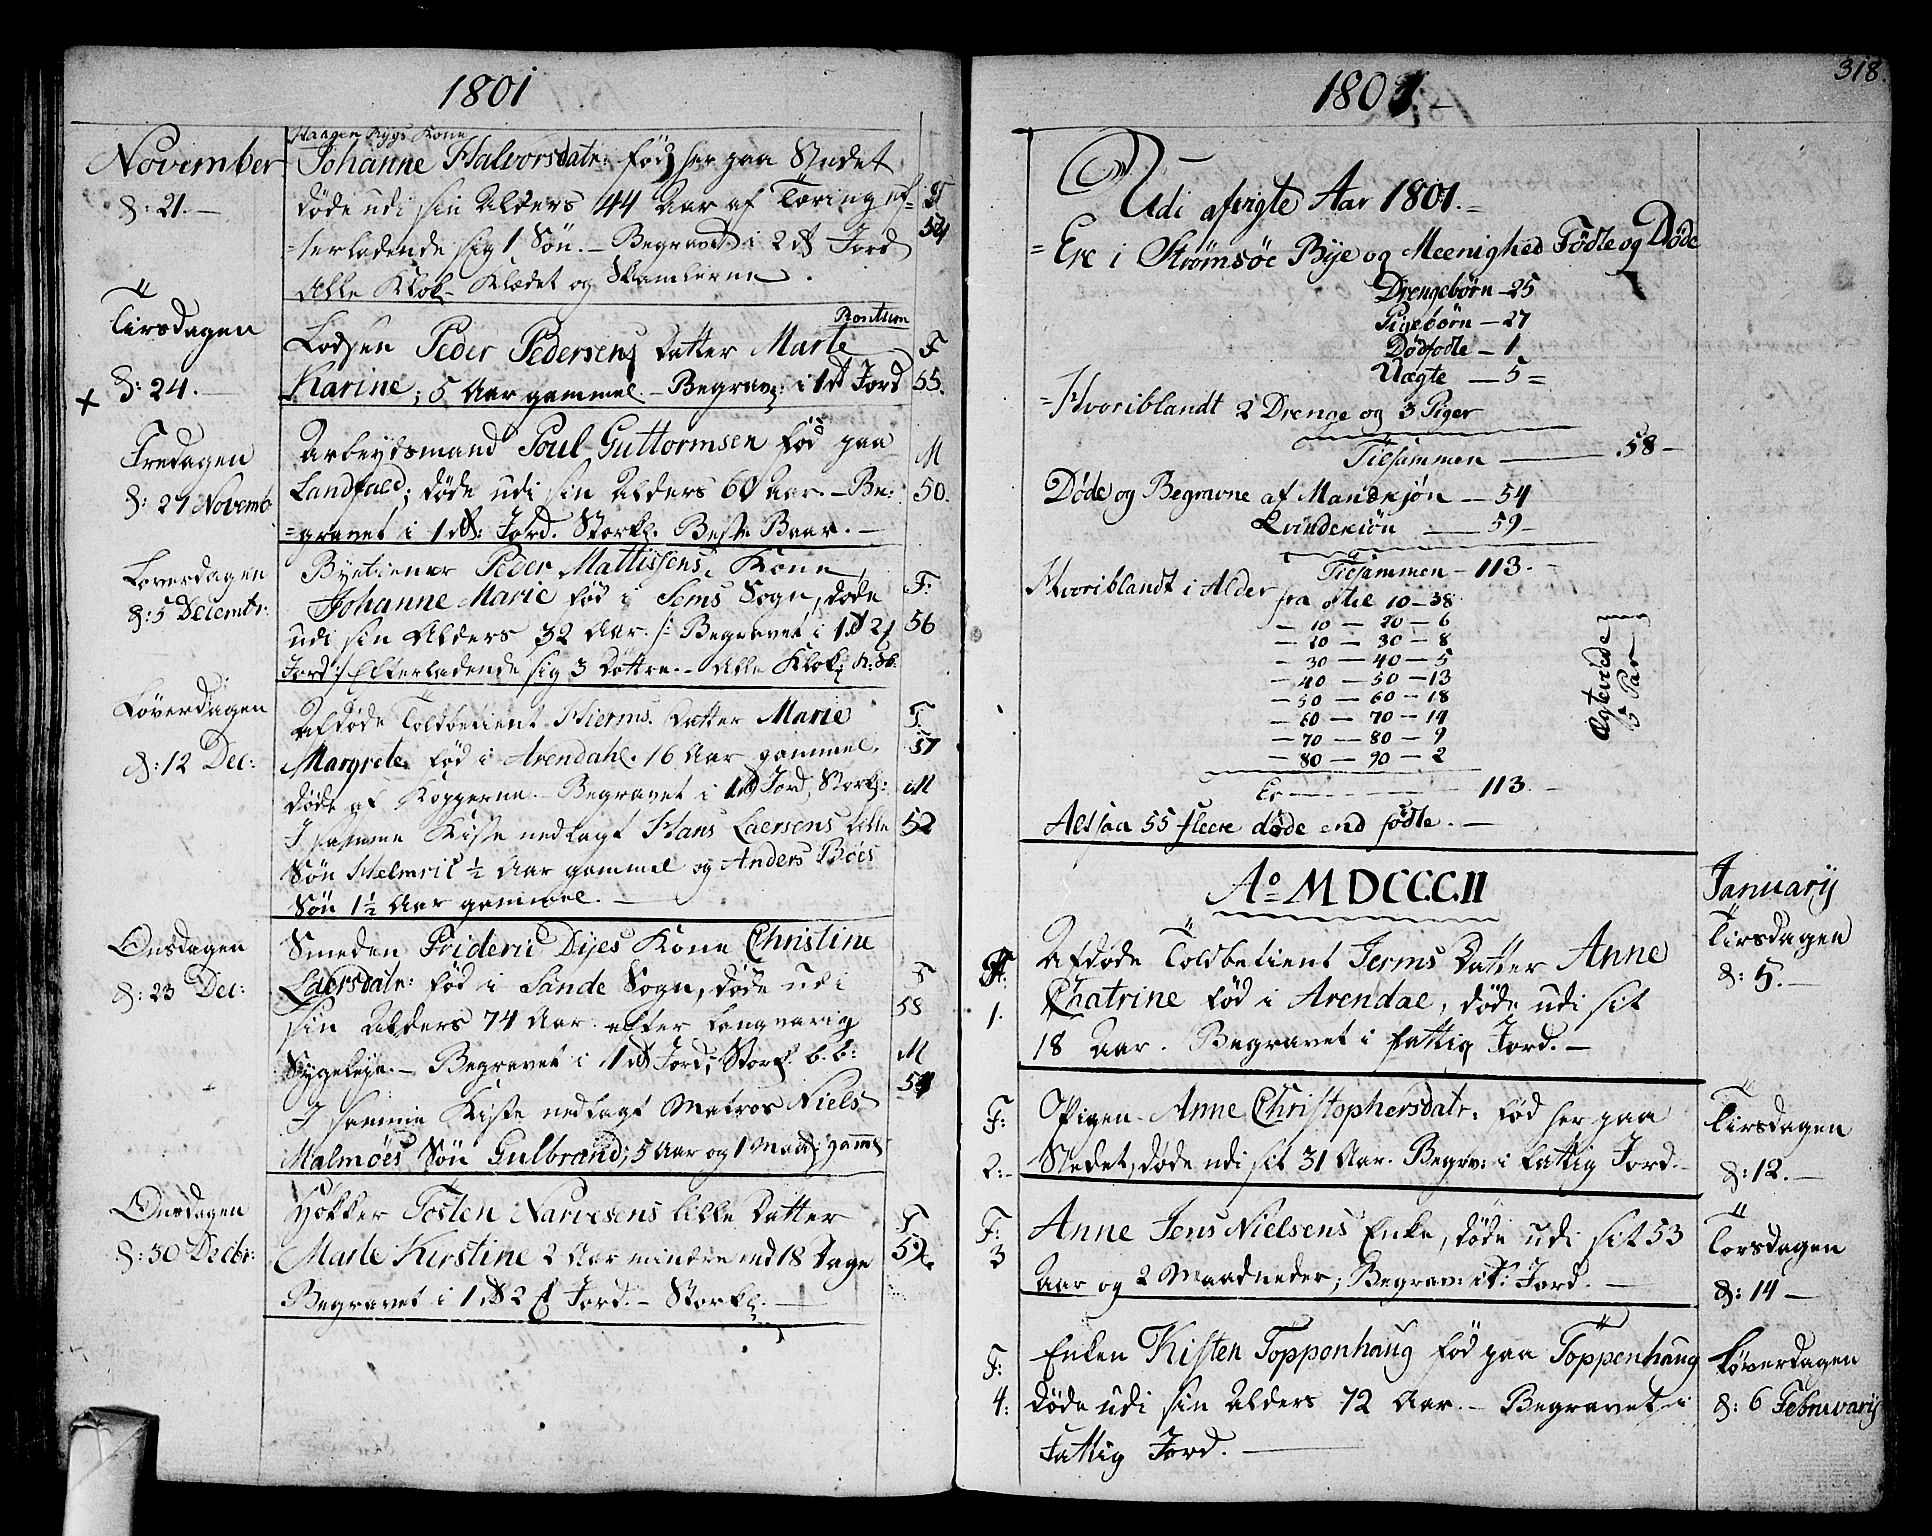 1801
November
d: 21.
Haagen Rygs Kone
Johanne Halvorsdatr: fød her paa Stedet
døde udi sin Alders 44 Aar af Tæring ef=
=terladende sig 1 Søn. — Begravet i 2 d Jord
Alle Klok. Klædet og Skamlerne.
F
54
Tirsdagen
d: 24.
Rontum
Lodsen Peder Pedersens Datter Marte
Karine; 5 Aar gammel — Begrav: i 1 d Jord
F
55.
Fredagen
d: 27 Novemb
Arbeydsmand Poul Guttormsen fød paa
Landfald; døde udi sin Alders 60 Aar. — Be:
=gravet i 1 d: Jord. Storkl. Beste Baar. —
M
50.
Løverdagen
d: 5 Decembr:
Byetiener Peder Mattissens Kone
Johanne Marie fød i Sems Sogn, døde
udi sin Alders 32 Aar. /: Begravet i 1 d 2 f
Jord :/ Efterladende sig 3 Døttre. — Alle Klok:
F:
56
Løverdagen
d: 12 Dec:
Afdøde Toldbetient Hierms Datter Marie
Margrete fød i Arendahl. 16 Aar gammel.
døde af Kopperne. — Begravet i 1 d Jord, Storkl:
I samme Kiste nedlagt Hans Laersens lille
Søn Helmric ½ Aar gammel og Anders Böes
Søn 1½ Aar gammel. —
F.
57
M
52
Onsdagen
d: 23 Dec:
Smeden Frideric Dyes Kone Christine
Laersdatr: fød i Sande Sogn, døde udi
sin Alders 74 Aar. efter langvarig
Sygeleye. — Begravet i 1 d Jord, Stork. b.b:
I samme Kiste nedlagt Matros Niels
Malmöes Søn Gulbrand; 5 Aar og 1 Maad: gaml
F
58
M
54
Onsdagen
d: 30 Decbr:
Høkker Tosten Narvesens lille Datter
Marte Kirstine 2 Aar mindre end 18 Dage
Begravet i 1 d 2 f Jord. — Storkl. —
F
59.
318.
1801. —
Udi afvigte Aar 1801. =
= Ere i Strømsöe Bye og Meenighed Födte og Döde
Drengebørn — 25
Pigebørn — 27
Dødfodte — 1
Uægte — 5 =
= Hvoriblandt 2 Drenge og 3 Piger
Tilsammen — 58 —
Døde og Begravne af Mandkjøn — 54
Qvindekiön — 59 —
Tilsammen — 113. —
Hvoriblandt i Alder fra 0 til 10 — 38
— 10 — 20 — 6
— 20 — 30 — 8
— 30 — 40 — 5
— 40 — 50 — 13
— 50 — 60 — 18
— 60 — 70 — 14
— 70 — 80 — 9
— 80 — 90 — 2
Er — 113. —
Ægteviede
5 Par
Altsaa 55 fleere døde end fødte. —
Ao MDCCCII
January
Tirsdagen
d: 5. —
F:
1.
Afdøde Toldbetient Jerms Datter Anne
Chatrine fød i Arendal, døde udi sit
18 Aar. Begravet i fattig Jord. —
F:
2:
Pigen Anne Christophersdatr: fød her paa
Stedet, døde udi sit 31 Aar. Begrav: i fattig Jord. —
Tirsdagen
d: 12. —
F:
3
Anne Jens Nielsens Enke, døde udi sit 53
Aar og 2 Maadneder; Begrav: i f: Jord. —
Torsdagen
d: 14 —
F:
4:
Enken Kisten Toppenhaug fød paa Toppenhaug
døde udi sin Alders 72 Aar. — Begravet i
Fattig Jord. —
Løverdagen
d: 6 Februarij